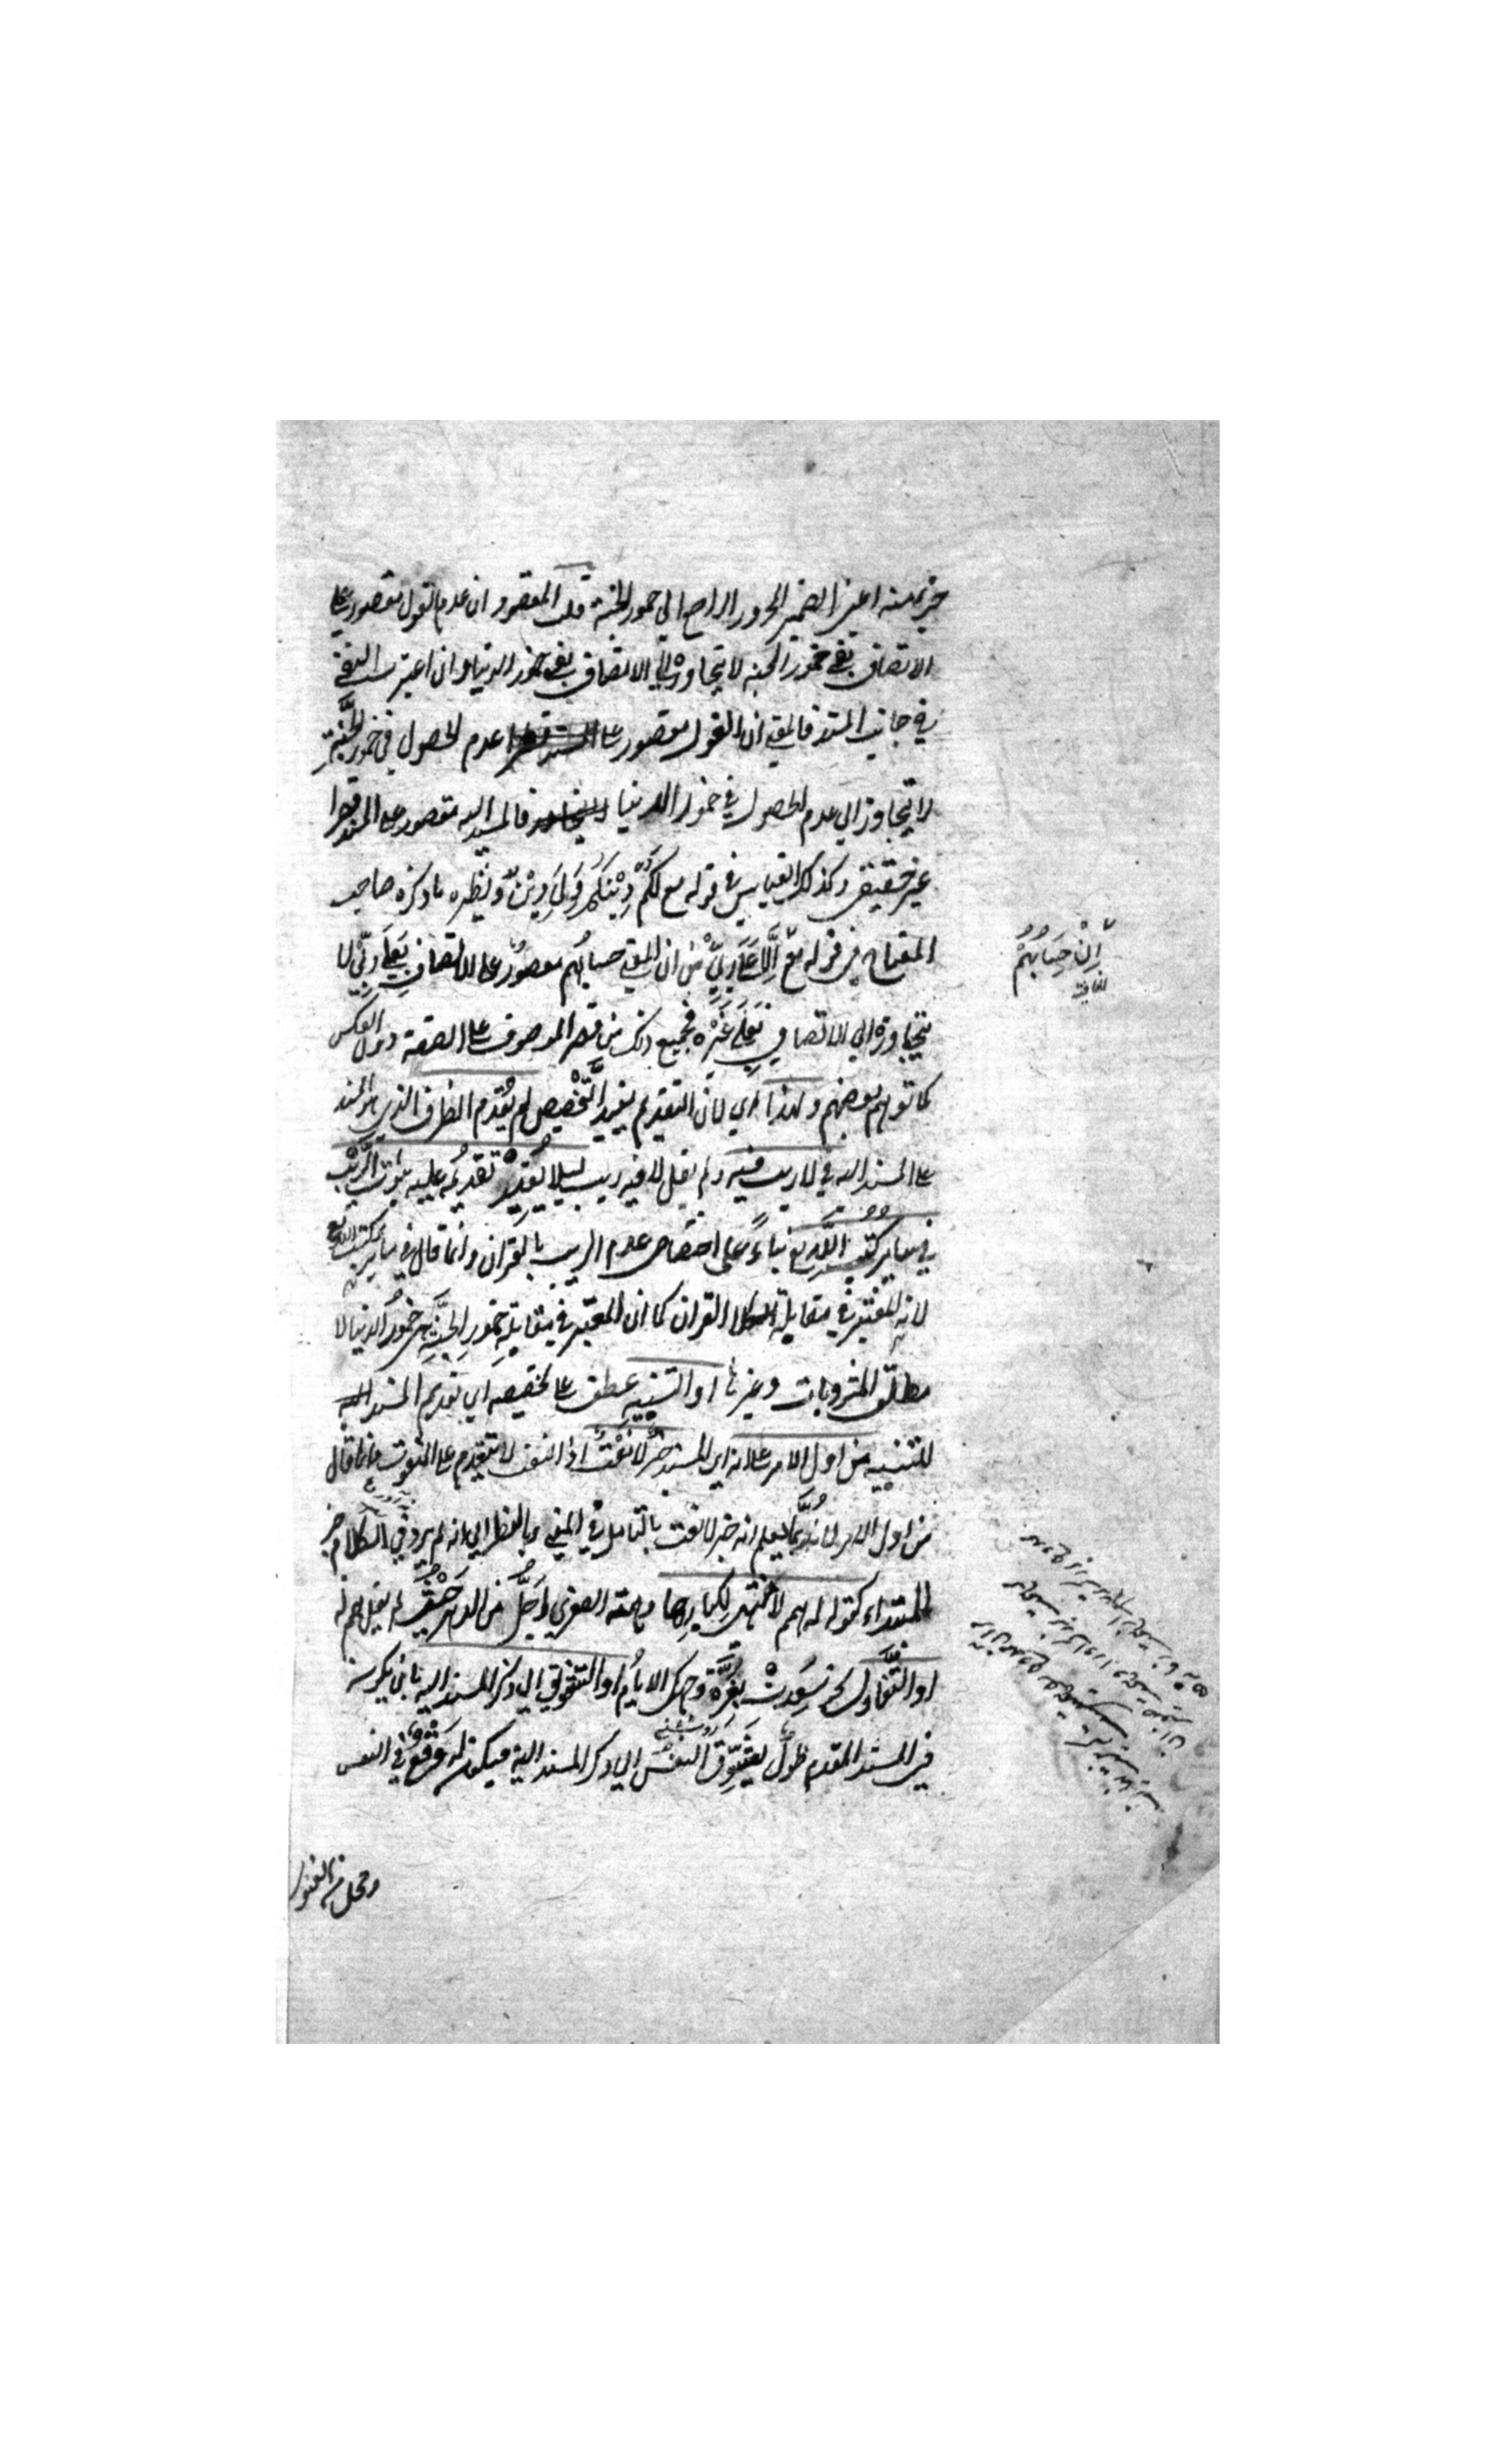 جزء منه اعني الضمير المجرور الراجع الى خمور الجنة قلت المقصود ان عدم الغول مقصور على
الاتصاف بفي خمور الجنة لا يتجاوزه الى الاتصاف بفي خمور الدنيا وان اعتبرت النفي
في جانب المسند فالمعنى ان الغول مقصور على عدم الحصول في خمور الجنة
لا يتجاوز الى عدم الحصول في خمور الدنيا فالمسند اليه مقصور على المسند قصرا
غير حقيقي وكذلك القياس في قوله تع لَكُمْ دِيْنُكُمْ وَلِيَ دِيْنِ ونظيره ما ذكره صاحب
المفتاح في قوله تع اِلَّا عَلَى رَبِّيْ من ان المعنى حسابُهم مقصورٌ على الاتصافِ بِعَلَى ربِّيْ لا
اِنْ حِسَابُهُمْ
يتجاوزه الى الاتصاف بِعَلَى غَيْرِه فجميع ذلك من قصر الموصوف على الصفة دون العكس
كما توهم بعضهم ولهذا اي لان التقديم يفيد التَّخْصِيص لم يُقدم الظرف الذي هو المسند
على المسند اليه في لا ريب فيه ولم يقل لا فيه ريب ليلا يُفِيْدَ تقديمُه عليه ثبوتَ الرَّيْب
في سايرِ كُتُبِ اللّٰهِ تع بناءً على اختصاص عدم الريب بالقران وانما قال في ساير كتب الله تع
لانه المُعْتَبَر في مقابلة القران كما ان المعتبر في مقابلةِ خمورِ الجَنَّةِ هي خمورُ الدنيا لا
مطلق المشروبات وغيرها او التنبيه عطف على تخصيصه اي تقديم المسند
للتنبيه من اول الامر على انه اي المسند خبرٌ لا نَعْتٌ اذ النعت لا يتقدم على المنعوت وانما قال
من اول الامر لانه رُبَّمَا يعلم انه خبر لا نعت بالتامل في المعنى وبالنظر الى انه لم يرد في الكلام خبر
للمبتداء كقوله له همم لا منتهى لِكبارِها وهمته الصغرى اَجَلُّ من الدهر حيث لم يقل همم له
او التَّفَاؤُل نحو سَعِدَتْ بِغُرَّةِ وجهك الايامُ او التشويق الى ذكر المسند اليه بان يكون
في المسند المقدم طولٌ يُشَوِّقُ النفسَ الى ذكر المسند اليه فيكون له وَقْعٌ في النفس
ومحل من القبول